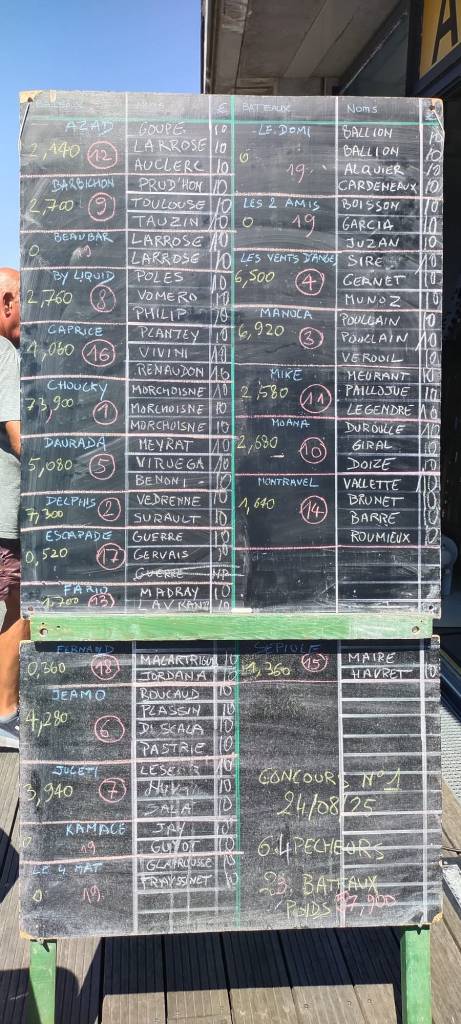 BATEAUX NOMS €
AZAD GOUPE 10
2,140 12 LARROSE 10
AUCLERC 10
BARBICHON PRUD'HON 10
2,700 9 TOULOUSE 10
TAUZIN 10
BEAUBAR LARROSE 10
0 LARROSE 10
BY LIQUID POLES 10
2,760 8 VOMERO 10
PHILIP 10
CAPRICE PLANTEY 10
1,060 16 VIVINI 10
RENAUDON 10
CHOUCKY MORCHOISNE 10
73,900 1 MORCHOISNE 10
MORCHOISNE 10
DAURADA MEYRAT 10
5,080 5 VIRUEGA 10
BENONI 10
DELPHIS VEDRENNE 10
7,300 2 SURAULT 10
ESCAPADE GUERRE 10
0,520 17 GERVAIS 10
GUERRE
FARIO MADRAY 10
1,700 13
BATEAUX NOMS €
LE DOMI BALLION 10
0 BALLION 10
19 ALQUIER 10
CARDENEAUX 10
LES 2 AMIS BOISSON 10
0 19 GARCIA 10
JUZAN 10
LES VENTS D'ANGE SIRE 10
6,500 4 GERNET 10
MUNOZ 10
MANOLA POULLAIN 10
6,920 3 POULLAIN 10
VEROUIL 10
MIKE MEURANT 10
2,580 11 PAILLOJUE 10
LEGENDRE 10
MOANA DUROULLE 10
2,680 10 GIRAL 10
DOIZE 10
MONTRAVEL VALLETTE 10
1,640 14 BRUNET 10
BARRE 10
ROUMIEUX 10
FERNAND
0,360 18 10
JORDANA 10
JEAMO ROUCAUD 10
4,280 PLASSIN 10
6 DISCALA 10
PASTRIE 10
JULETI 10
3,940 7 10
SALA 10
KAMALE JAY 10
0 19 GUYOT 10
LE 4 MAT 10
0 19 FRAYSSINET 10
SEPIOLE MAIRE
1,360 15 HAVRET 10
CONCOURS N°1
24/08/25
64 PECHEURS
23 BATEAUX
POIDS